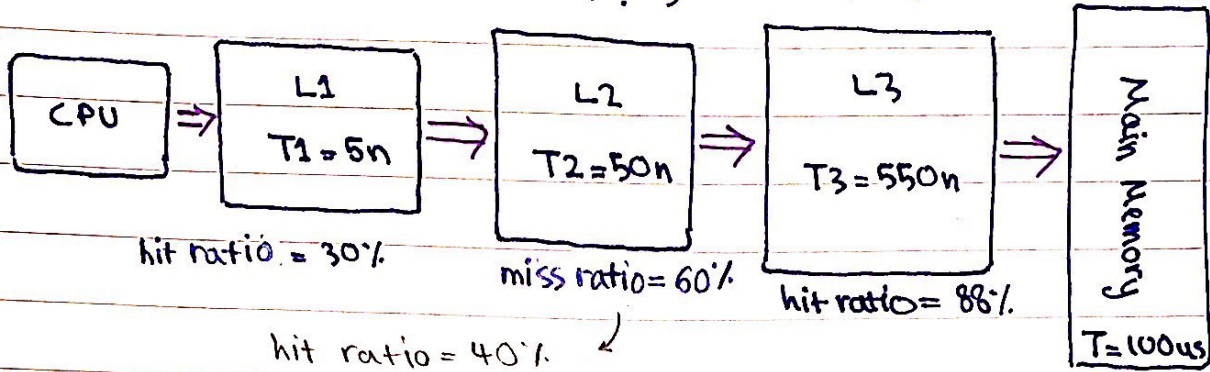 CPU
L1
T1=5n
L2
T2=50n
L3
T3=550n
Main Memory
T=100us
hit ratio = 30%
miss ratio=60%
hit ratio= 88%
hit ratio = 40%